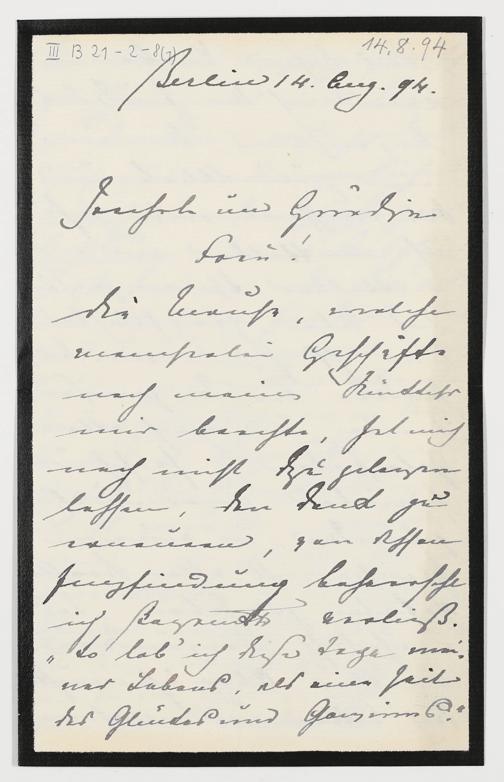 III B 21-2-8(7)
14.8.94
Berlin 14. Aug. 94.
Hochverehrte Gnädige
Frau!
Die Unruhe, welche
mancherlei Geschäfte
nach meiner Rückkehr
mir brachte, hat mich
noch nicht dazu gelangen
lassen, den Dank zu
erneuern, von dessen
Empfindung beherrscht
ich Bayreuth verließ.
„So leb' ich diese Tage mei-
nes Lebens, als eine Zeit
des Glückes und Gewinns."